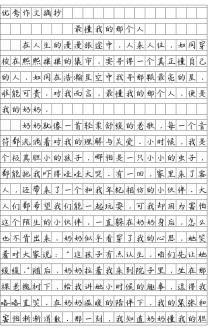 优秀作文摘抄
最懂我的那个人
在人生的漫漫旅途中，人来人往，如同穿
梭在熙熙攘攘的集市，要寻得一个真正懂自己
的人，如同在浩瀚星空中找寻那颗最亮的星，
艰难可贵，对我而言，最懂我的那个人，便是
我的奶奶。
奶奶就像一首轻柔舒缓的老歌，每一个音
符都流淌着对我的理解与关爱，小时候，我是
个极其胆小的孩子，哪怕是一只小小的虫子，
都能把我吓得哇哇大哭，有一回，家里来了客
人，还带来了一个和我年纪相仿的小伙伴，大
人们都希望我们能一起玩耍，可我却因为害怕
这个陌生的小伙伴，一直躲在奶奶身后，怎么
也不肯出来，奶奶似乎看穿了我的心思，她笑
着对大家说：“这孩子有点认生，咱们先让她
缓缓。”随后，奶奶拉着我来到院子里，坐在那
棵老槐树下，给我讲她小时候的趣事，逗得我
咯咯直笑，在奶奶温暖的陪伴下，我的紧张和
害怕渐渐消散，那一刻，我知道奶奶懂我的胆